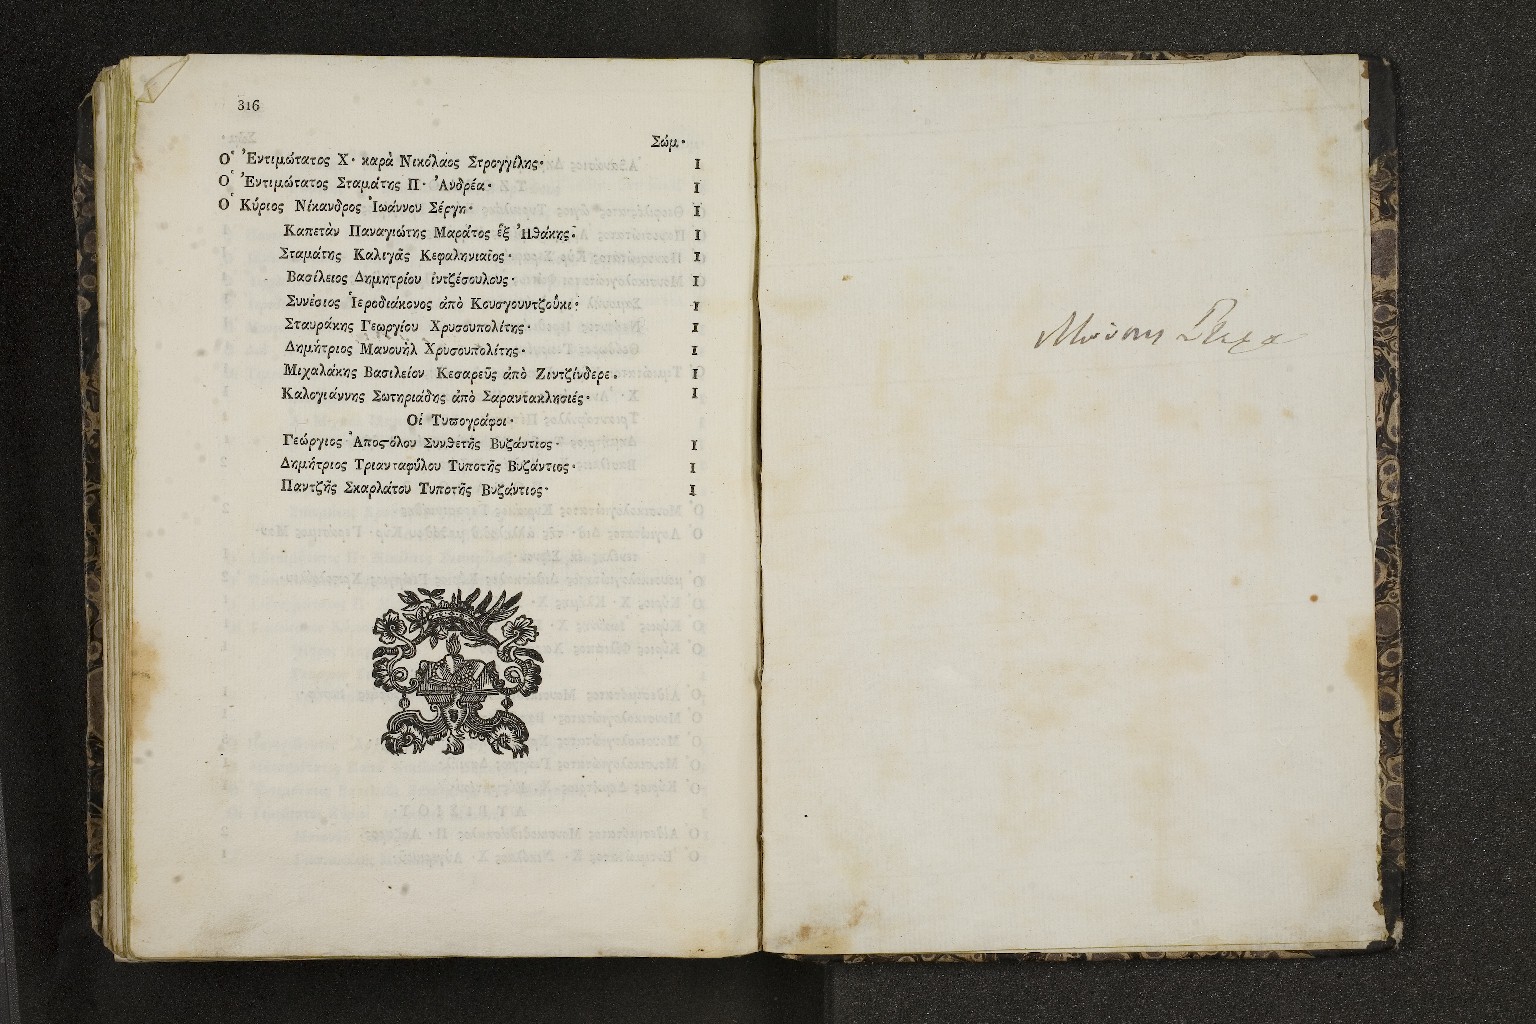 316
Σώμ·
Ὁ Ἐντιμώτατος Χ· καρὰ Νικόλαος Στρογγίλης· 1
Ὁ Ἐντιμώτατος Σταμάτης Π· Ἀνδρέα· 1
Ὁ Κύριος Νίκανδρος Ἰωάννου Σέργη· 1
Καπετὰν Παναγιώτης Μαράτος ἐξ Ἠθάκης· 1
Σταμάτης Καλιγᾶς Κεφαληνιαῖος· 1
Βασίλειος Δημητρίου ἰντζέσουλους· 1
Συνέσιος Ἱεροδιάκονος ἀπὸ Κουσγουντζοῦκι· 1
Σταυράκης Γεωργίου Χρυσουπολίτης· 1
Δημήτριος Μανουὴλ Χρυσουπολίτης· 1
Μιχαλάκης Βασιλείου Κεσαρεῦς ἀπὸ Ζιντζίνδερε. 1
Καλογιάννης Σωτηριάδης ἀπὸ Σαραντακλησιές· 1
Οἱ Τυπογράφοι·
Γεώργιος Ἀποστόλου Συνθετῆς Βυζάντιος· 1
Δημήτριος Τριανταφύλου Τυποτῆς Βυζάντιος· 1
Παντζῆς Σκαρλάτου Τυποτῆς Βυζάντιος· 1